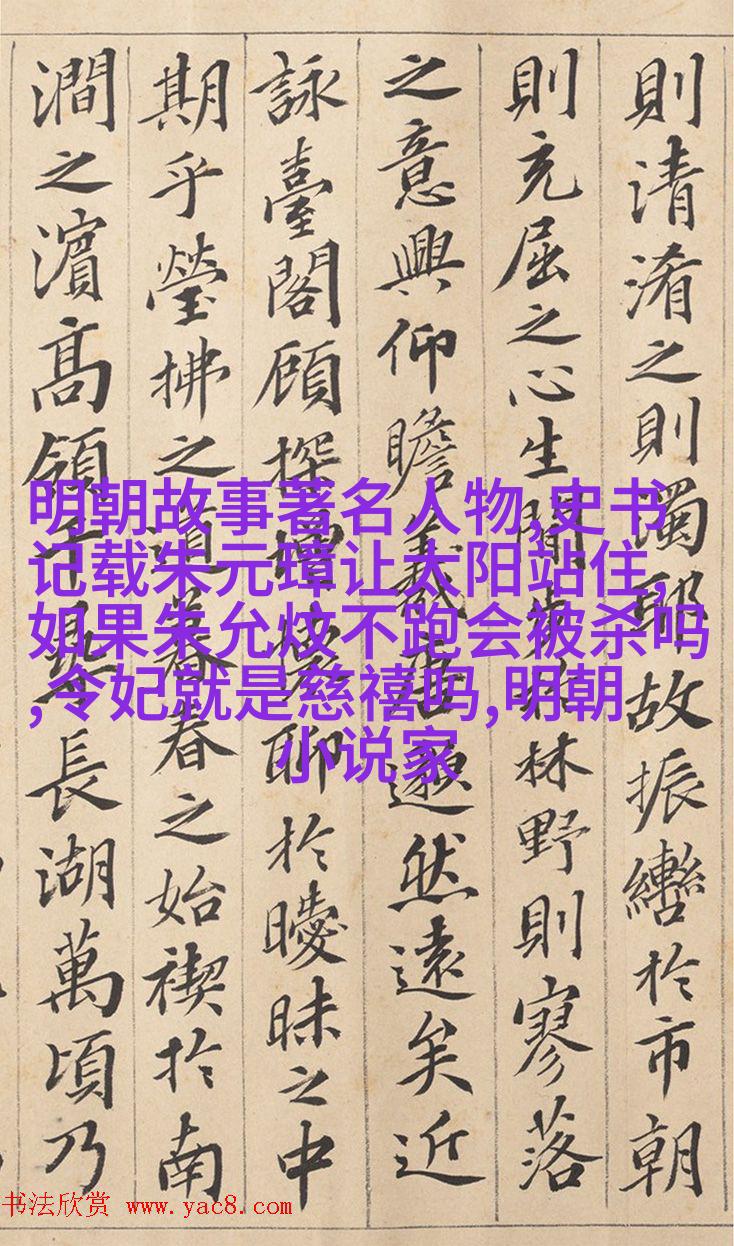 則清淆之則濁耶故振轡於市朝
則充屈之心生閒步於林野則寥落
之意興仰瞻羲唐邈然遠矣近
詠臺閣顧探增懷聊於曖昧之中
期乎瑩拂之道暮春之始禊於南
澗之濱高領千尋長湖萬頃乃
明朝故事著名人物,史书
记载朱元璋让太阳站住,
如果朱允炆不跑会被杀吗
,令妃就是慈禧吗,明朝
小说家
书法欣赏 www.yac8.com